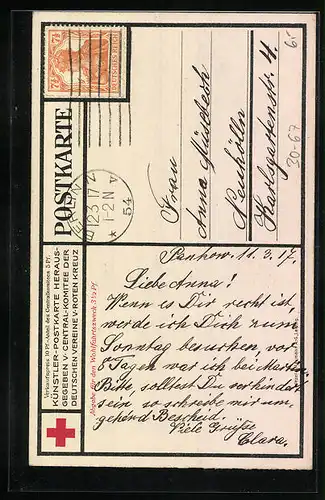 DEUTSCHES REICH
7½ 7½
POSTKARTE
BERLIN
12.3.17.
1-2 N
* 54
Frau
Anna
Neukölln
Karlsgartenstr. 4.
6.-
30-67
Verkaufspreis 10 Pf.
KÜNSTLER-POSTKARTE HERAUS-
GEGEBEN V·CENTRAL-KOMITEE DER
DEUTSCHEN VEREINE V·ROTEN KREUZ
Abgabe für den Wohlfahrtszweck 3½ Pf.
Pankow. 11.3.17.
Liebe Anna!
Wenn es Dir recht ist,
werde ich Dich zum
Sonntag besuchen, vor
8 Tagen war ich bei
Bitte, solltest Du verhindert
sein so schreibe mir um-
gehend Bescheid.
Viele Grüße
Clara.